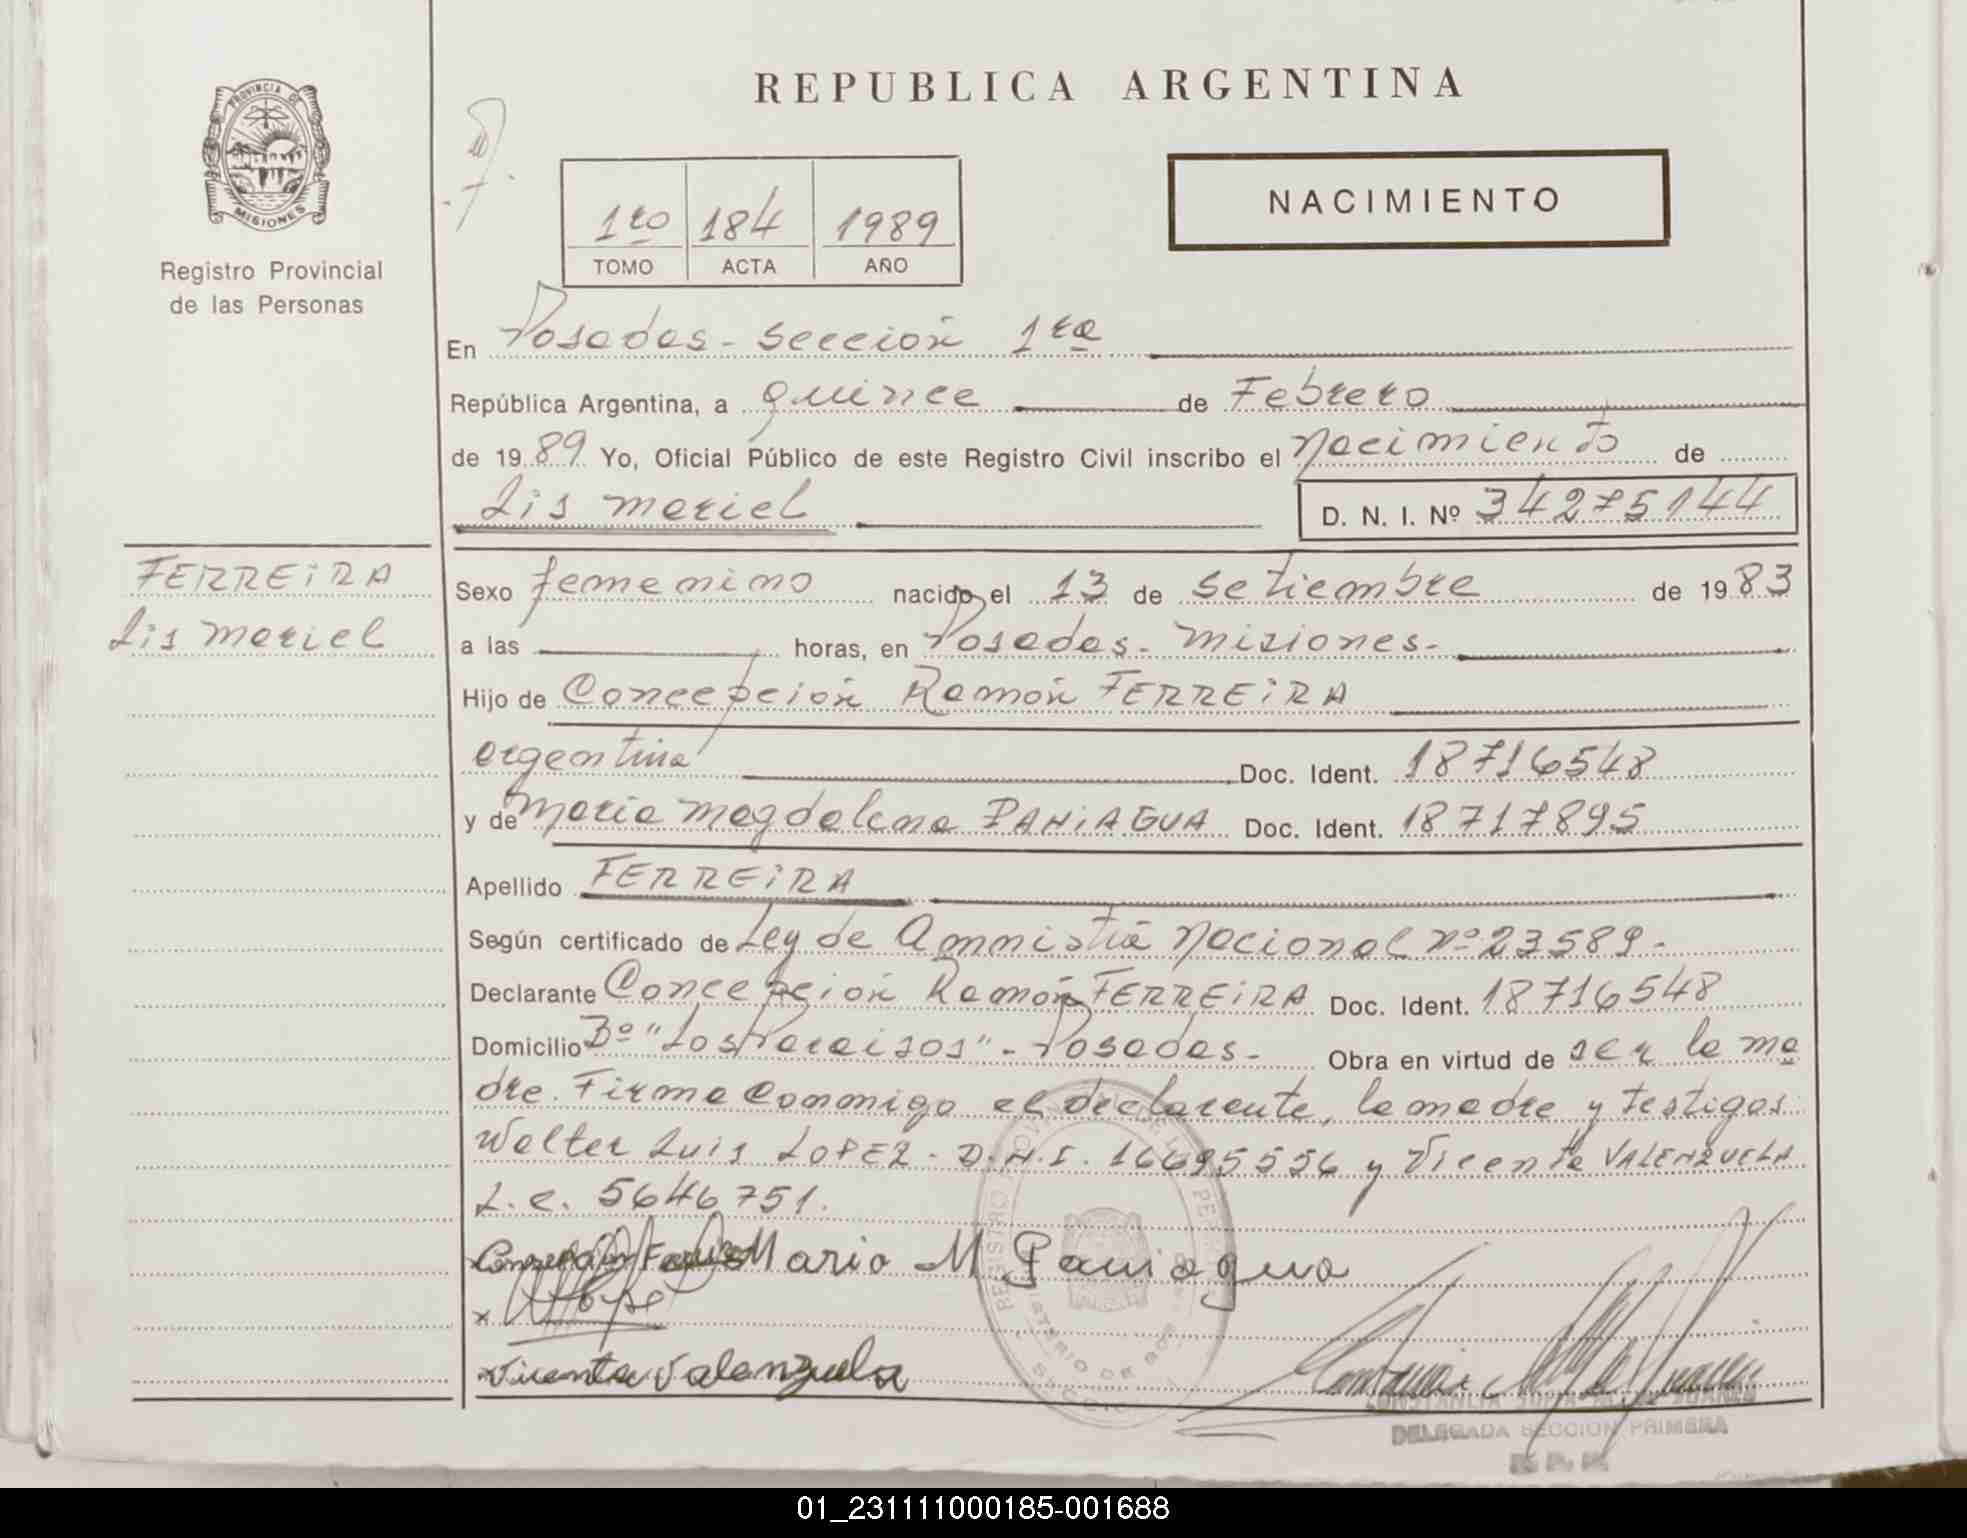 REPUBLICA ARGENTINA
PROVINCIA DE
MISIONES
Registro Provincial
de las Personas
NACIMIENTO
1ro 184 1989
TOMO ACTA AÑO
En Posadas - Sección 1ra
República Argentina, a quince de Febrero
de 1989 Yo, Oficial Público de este Registro Civil inscribo el nacimiento de
Lis Mariel D. N. I. Nº 34275144
FERREiRA
Lis Mariel
Sexo femenino nacido el 13 de Setiembre de 1983
a las horas, en Posadas - Misiones -
Hijo de Concepción Ramón FERREiRA
argentina Doc. Ident. 18716548
y de María Magdalena PANiAGUA Doc. Ident. 18717895
Apellido FERREiRA
Según certificado de Ley de Amnistía Nacional Nº 23589 -
Declarante Concepción Ramón FERREiRA Doc. Ident. 18716548
Domicilio Bº "Los Paraisos" - Posadas - Obra en virtud de ser la ma
dre. Firma Conmigo el declarante, la madre y testigos
Walter Luis LOPEZ - D.N.I. 16695556 y Vicente VALENZUELA
L.e. 5646751.
Maria M Paniagua
x
Vicente Valenzuela
DELEGADA SECCION PRIMERA
01_231111000185-001688